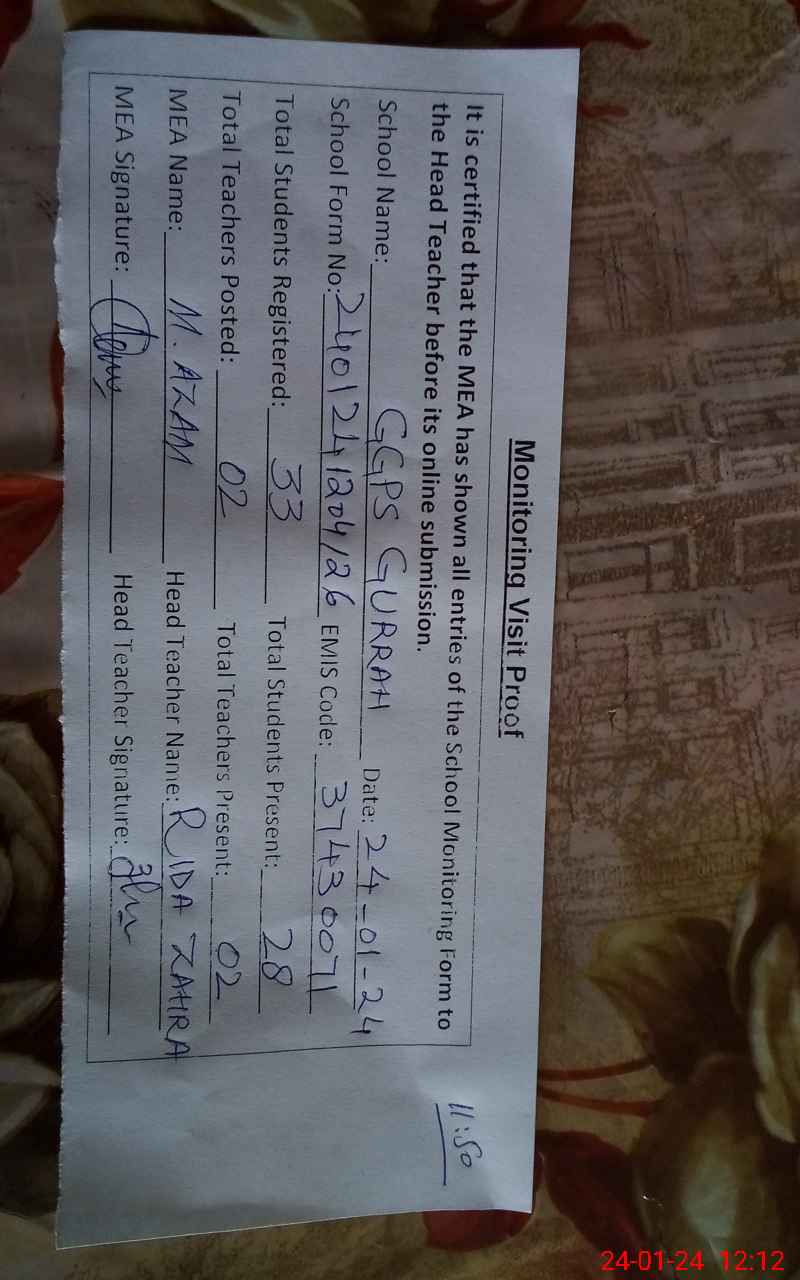 Monitoring Visit Proof
It is certified that the MEA has shown all entries of the School Monitoring Form to
the Head Teacher before its online submission.
School Name: GGPS GURRAH Date: 24-01-24
School Form No: 2401241204126 EMIS Code: 37430071
Total Students Registered: 33 Total Students Present: 28
Total Teachers Posted: 02 Total Teachers Present: 02
MEA Name: M. AZAM Head Teacher Name: RIDA ZAHRA
MEA Signature: Head Teacher Signature:
11:50
24-01-24 12:12